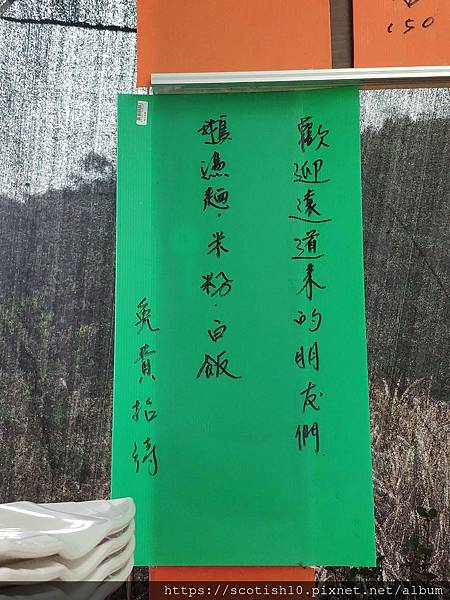 150
歡迎遠道來的朋友們
麵.米粉.白飯
免費招待
https://scotish10.pixnet.net/album